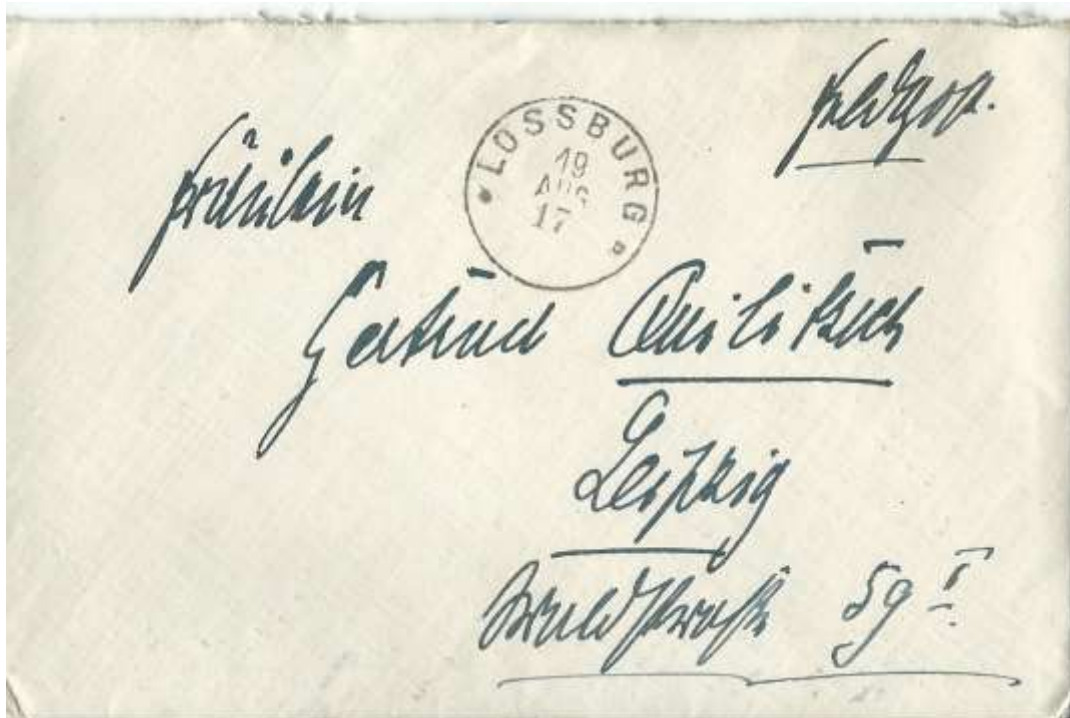 Feldpost.
LOSSBURG
19
AUG
17
Fräulein
Gertrud
Leipzig
Waldstraße 59 I.